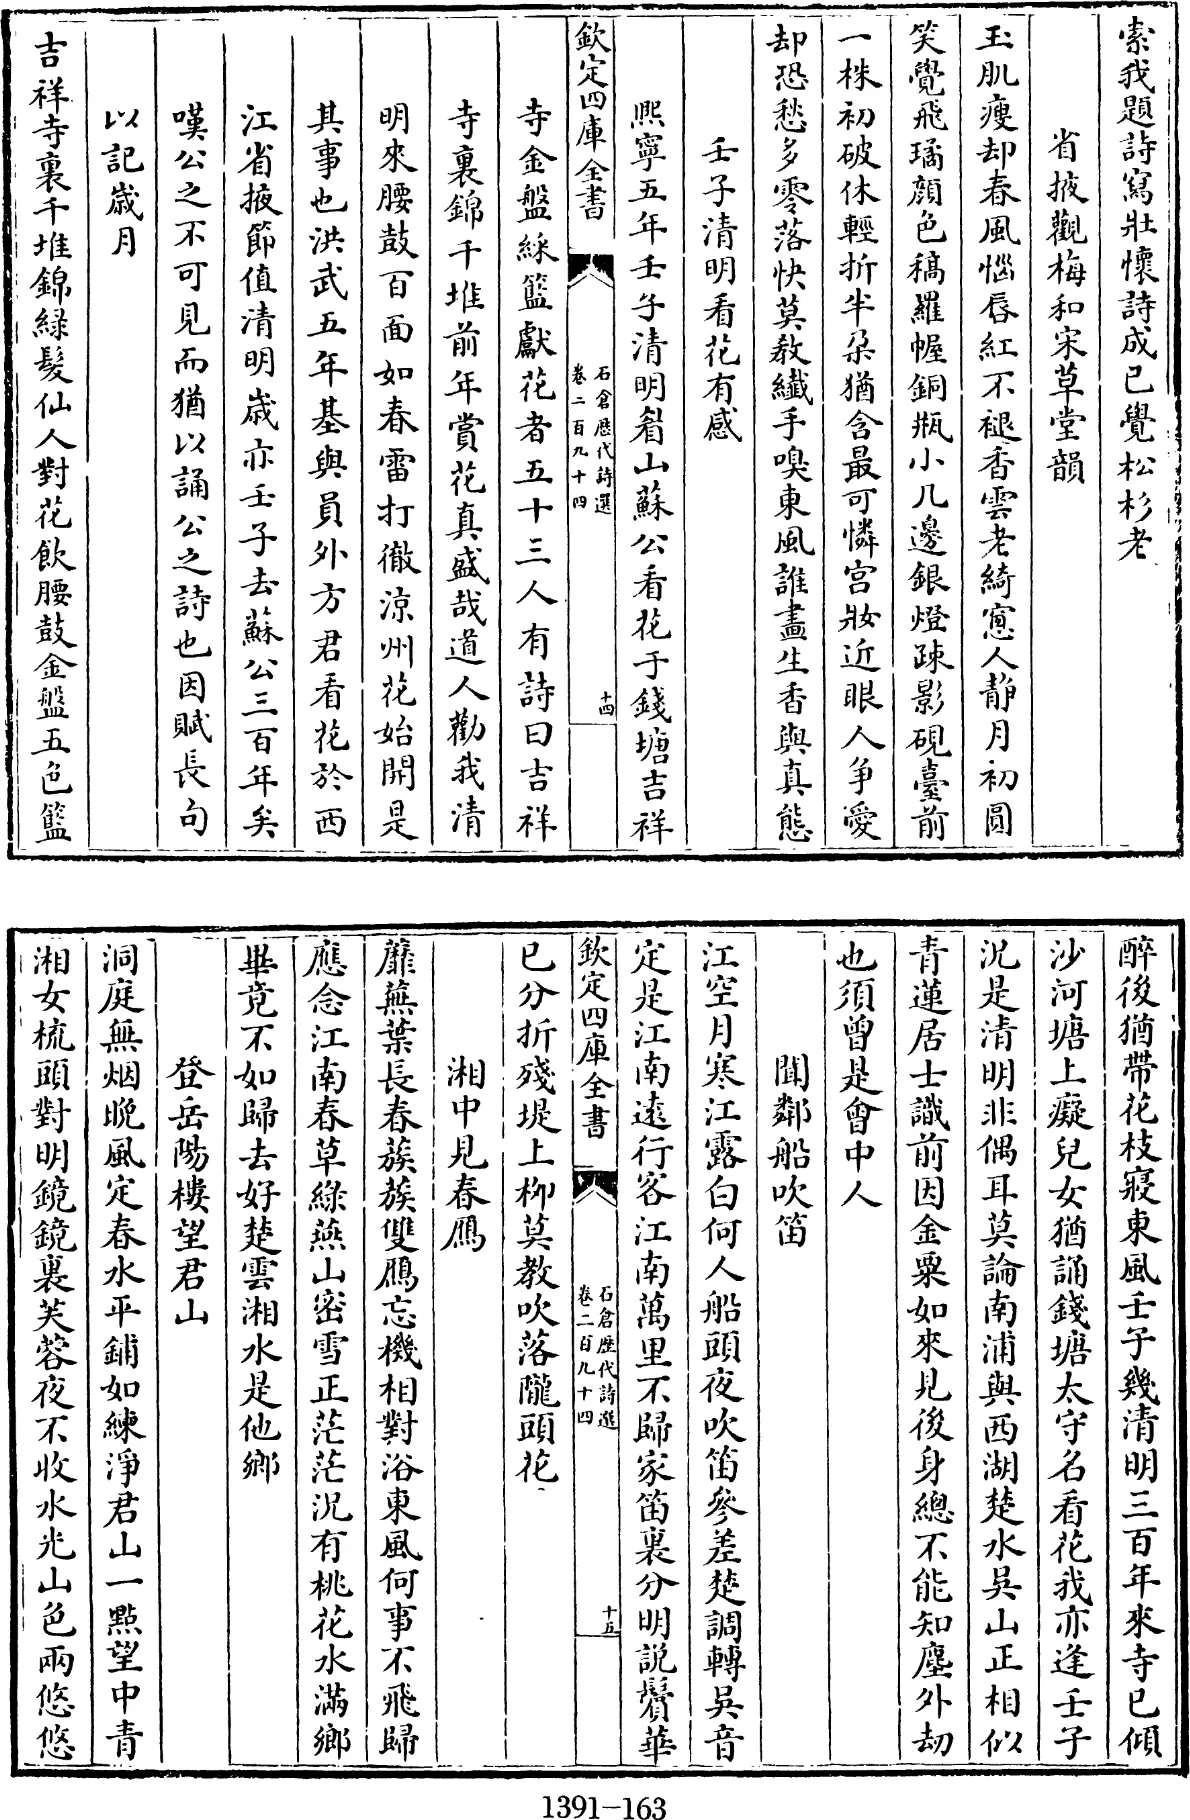 索我題詩寫壯懷詩成已覺松杉老
省掖觀梅和宋草堂韻
玉肌瘦却春風惱唇紅不褪香雲老綺窻人靜月初圓
笑覺飛璚顔色稿羅幄銅瓶小几邊銀燈疎影硯臺前
一株初破休輕折半朶猶含最可憐宫妝近眼人争愛
却恐愁多零落快莫教纖手嗅東風誰畫生香與真態
壬子清明看花有感
熈寧五年壬子清明眉山蘇公看花于錢塘吉祥
欽定四庫全書
石倉歴代詩選
卷二百九十四
十四
寺金盤綵籃獻花者五十三人有詩曰吉祥
寺裏錦千堆前年賞花真盛哉道人勸我清
明來腰鼓百面如春雷打徹涼州花始開是
其事也洪武五年基與員外方君看花於西
江省掖節值清明歳亦壬子去蘇公三百年矣
嘆公之不可見而猶以誦公之詩也因賦長句
以記歳月
吉祥寺裏千堆錦緑髮仙人對花飲腰鼓金盤五色籃
醉後猶帶花枝寢東風壬子幾清明三百年來寺已傾
沙河塘上癡兒女猶誦錢塘太守名看花我亦逢壬子
况是清明非偶耳莫論南浦與西湖楚水吳山正相似
青蓮居士識前因金粟如來見後身總不能知塵外刼
也須曾是會中人
聞鄰船吹笛
江空月寒江露白何人船頭夜吹笛參差楚調轉吳音
定是江南遠行客江南萬里不歸家笛裏分明説鬢華
欽定四庫全書
石倉歴代詩選
卷二百九十四
十五
已分折殘堤上栁莫教吹落隴頭花
湘中見春鴈
蘼蕪葉長春蔟蔟雙鴈忘機相對浴東風何事不飛歸
應念江南春草緑燕山密雪正茫茫况有桃花水滿鄉
畢竟不如歸去好楚雲湘水是他鄉
登岳陽樓望君山
洞庭無烟晩風定春水平鋪如練淨君山一點望中青
湘女梳頭對明鏡鏡裏芙蓉夜不收水光山色兩悠悠
1391-163